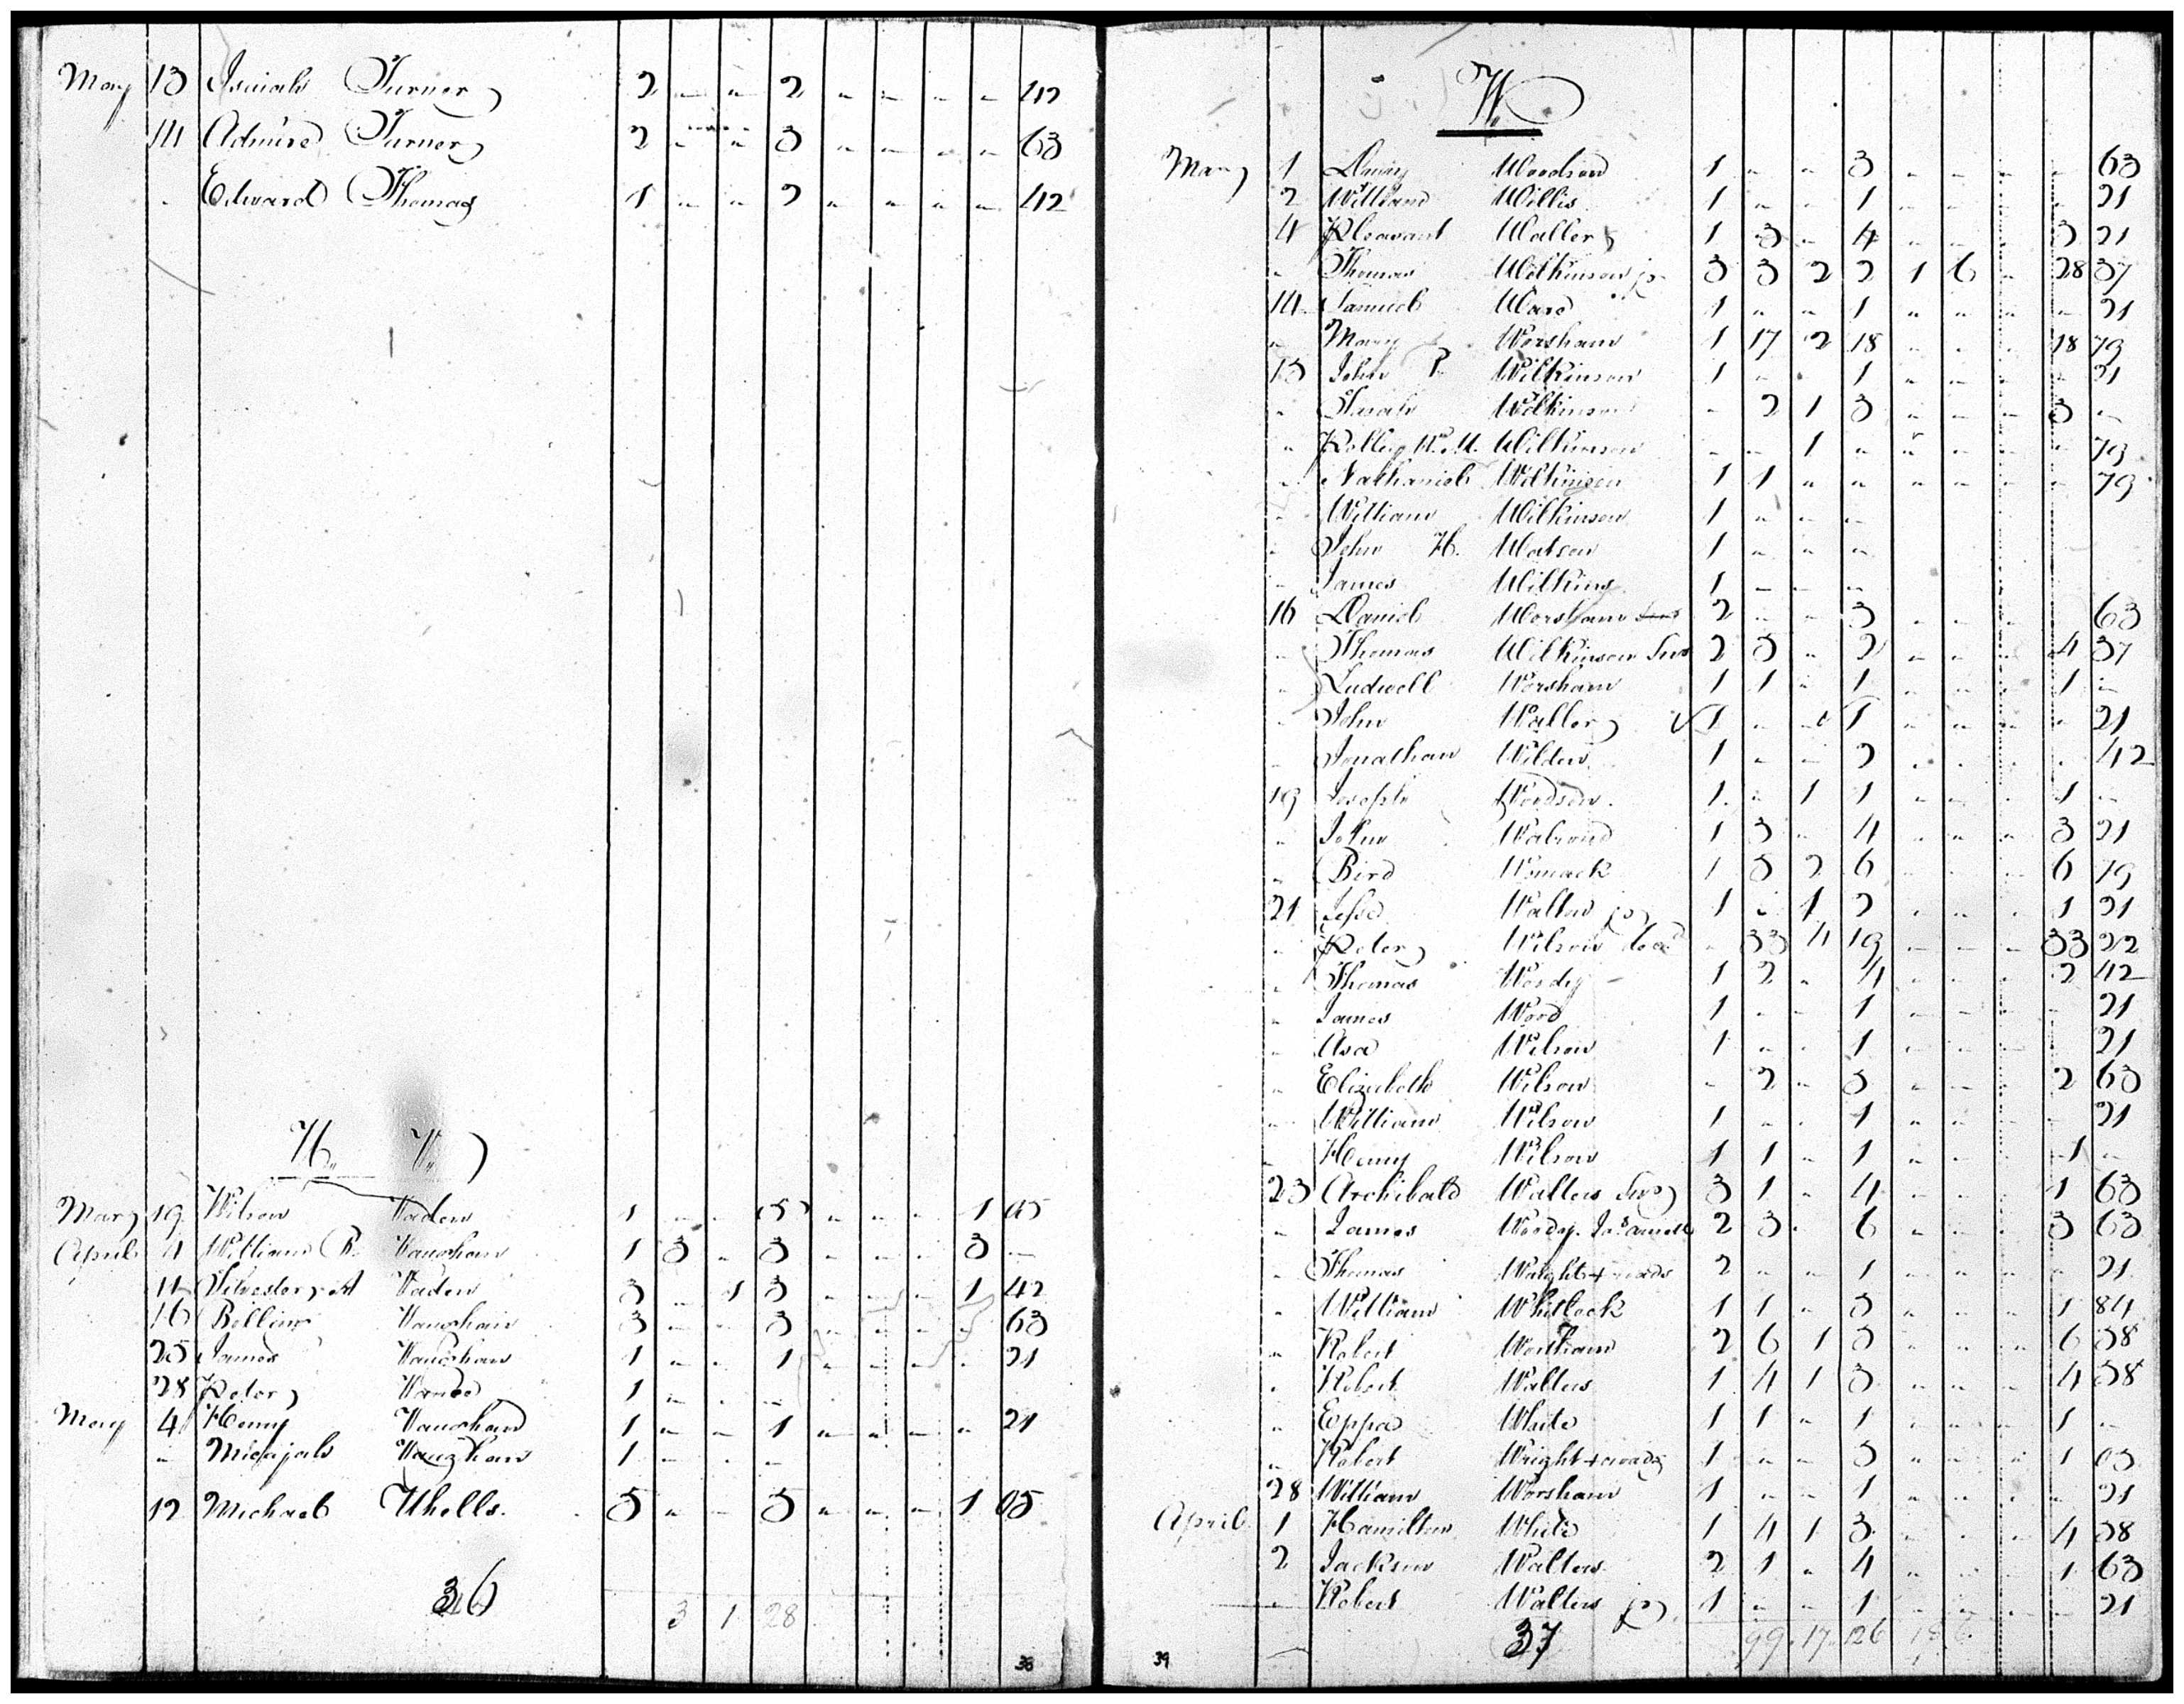 May 13 Isaiah Turner 2 " " 2 " " " " 42
14 Admire Turner 2 " " 3 " " " " 63
" Edward Thomas 1 " " 2 " " " " 42
V.
Mar 19 Wilson Vaden 1 " " 5 " " " 1 05
April 4 William B. Vaughan 1 3 " 3 " " " 3 "
11 Silvester A Vaden 3 " 1 3 " " " 1 42
16 Vaughan 3 " " 3 " " " " 63
25 James Vaughan 1 " " 1 " " " " 21
28 Peter 1 " " "
May 4 Henny Vaughan 1 " " 1 " " " " 21
" Micajah Vaughan 1 " " "
12 Michael Uhells. 5 " " 5 " " " 1 05
36
3 1 28
38
W.
Mar 1 Woodson 1 " " 3 " " " " 63
2 William Willis 1 " " 1 " " " " 21
4 Pleasant Waller 1 3 " 4 " " " 3 21
" Thomas Wilkinson jr 3 3 2 2 1 6 " 28 37
14 Samuel Ward 1 " " 1 " " " " 21
" Mary Worsham 1 17 2 18 " " " 18 79
15 John P. Wilkinson 1 " " 1 " " " " 21
" Sarah Wilkinson " 2 1 3 " " " 3 "
" Wilkinson " " 1 " " " " " 79
" Nathaniel Wilkinson 1 1 " " " " " " 79
" William Wilkinson 1 " " "
" John H. Watson 1 " " "
" James Wilkins 1 " " "
16 Daniel Worsham 2 " " 3 " " " " 63
" Thomas Wilkinson Senr 2 5 " 2 " " " 4 37
" Ludwell Worsham 1 1 " 1 " " " 1 "
" John Waller 1 " " 1 " " " " 21
" Jonathan 1 " " 2 " " " " 42
19 Joseph Woodson 1 " 1 1 " " " 1 "
" John Walrond 1 3 " 4 " " " 3 21
" Bird Womack 1 5 2 6 " " " 6 79
21 Jesse Walters jr 1 " 1 2 " " " 1 21
" Peter Wilson decd " 33 4 19 " " " 33 22
" Thomas Woody 1 2 " 4 " " " 2 42
" James Wood 1 " " 1 " " " " 21
" Asa Wilson 1 " " 1 " " " " 21
" Elizabeth Wilson " 2 " 3 " " " 2 63
" William Wilson 1 " " 1 " " " " 21
" Henny Wilson 1 1 " 1 " " " 1 "
23 Archibald Walters Senr 3 1 " 4 " " " 1 63
" James Woody 2 3 " 6 " " " 3 63
" Thomas 2 " " 1 " " " " 21
" William Whitlock 1 1 " 5 " " " 1 84
" Robert Wortham 2 6 1 5 " " " 6 58
" Robert Walters 1 4 1 5 " " " 4 58
" Eppa White 1 1 " 1 " " " 1 "
" Robert 1 " " 5 " " " 1 05
28 William Worsham 1 " " 1 " " " " 21
April 1 Hamilton White 1 4 1 3 " " " 4 58
2 Jackson Walters 2 1 " 4 " " " 1 63
" Robert Walters jr 1 " " 1 " " " " 21
37
99 17 126 1 6
39